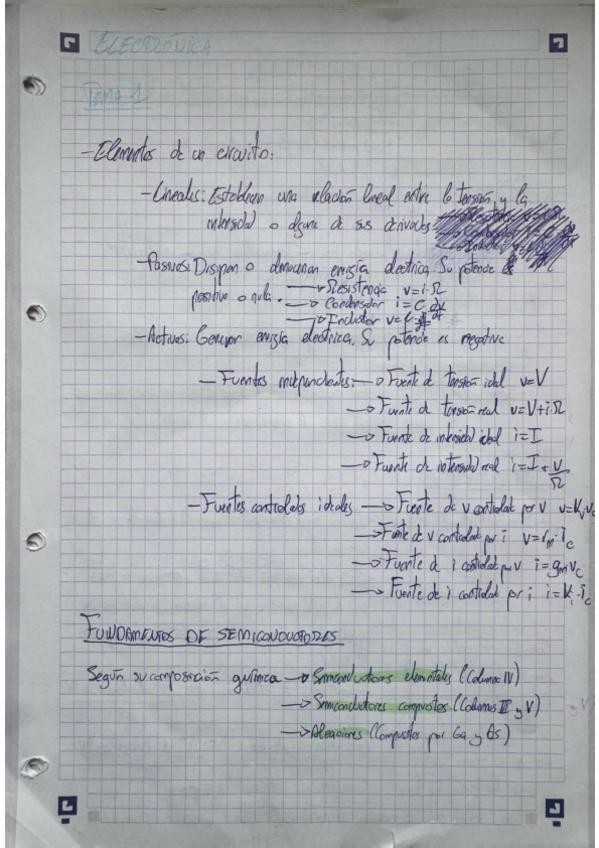 ELECTRÓNICA
TEMA 1
- Elementos de un circuito:
- Lineales: Establecen una relación lineal entre la tensión y la
intensidad o alguna de sus derivadas
- Pasivos: Disipan o almacenan energía eléctrica. Su potencia
positiva o nula. → Resistencia v=i·Ω
→ Condensador i=C dv/dt
→ Inductor v=L·
- Activos: Generan energía eléctrica. Su potencia es negativa
- Fuentes independientes: → Fuente de tensión ideal v=V
→ Fuente de tensión real v=V+i·Ω
→ Fuente de intensidad ideal i=I
→ Fuente de intensidad real i=I+v/Ω
- Fuentes controladas ideales → Fuente de v controlada por v v=Kv·vc
→ Fuente de v controlada por i v=rm·ic
→ Fuente de i controlada por v i=gm·vc
→ Fuente de i controlada por i i=Ki·ic
FUNDAMENTOS DE SEMICONDUCTORES
Según su composición química → Semiconductores elementales (Columna IV)
→ Semiconductores compuestos (Columnas III y V)
→ Aleaciones (Compuestos por Ga y As)